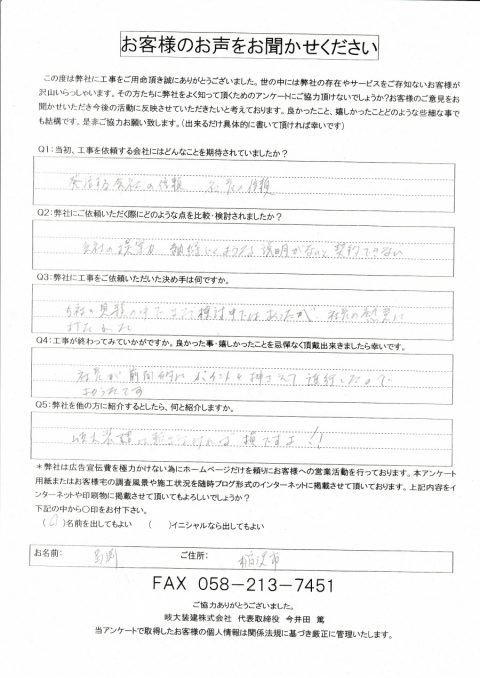 お客様のお声をお聞かせください
この度は弊社に工事をご用命頂き誠にありがとうございました。世の中には弊社の存在やサービスをご存知ないお客様が
沢山いらっしゃいます。その方たちに弊社をよく知って頂くためのアンケートにご協力頂けないでしょうか?お客様のご意見をお
聞かせいただき今後の活動に反映させていただきたいと考えております。良かったこと、嬉しかったことどのような些細な事で
も結構です。是非ご協力お願い致します。(出来るだけ具体的に書いて頂ければ幸いです)
Q1:当初、工事を依頼する会社にはどんなことを期待されていましたか?
Q2:弊社にご依頼いただく際にどのような点を比較・検討されましたか?
説明がないと契約できない
Q3:弊社に工事をご依頼いただいた決め手は何ですか。
5社の見積の中で 検討中ではあったが 社長の熱意に
打たれた
Q4:工事が終わってみていかがですか。良かった事・嬉しかったことを忌憚なく頂戴出来きましたら幸いです。
社長が前向的に ポイントを押さえて 施行したので
よかったです
Q5:弊社を他の方に紹介するとしたら、何と紹介しますか。
岐大装建に 損ですよ!!
*弊社は広告宣伝費を極力かけない為にホームページだけを頼りにお客様への営業活動を行っております。本アンケート
用紙またはお客様宅の調査風景や施工状況を随時ブログ形式のインターネットに掲載させて頂いております。上記内容をイ
ンターネットや印刷物に掲載させて頂いてもよろしいでしょうか?
下記の中から○印をお付下さい。
(○)名前を出してもよい ( )イニシャルなら出してもよい
お名前: 馬渕 ご住所: 稲沢市
FAX 058-213-7451
ご協力ありがとうございました。
岐大装建株式会社 代表取締役 今井田 篤
当アンケートで取得したお客様の個人情報は関係法規に基づき厳正に管理いたします。